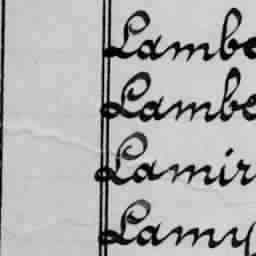 Lambe
Lambe
Lamir
Lamy